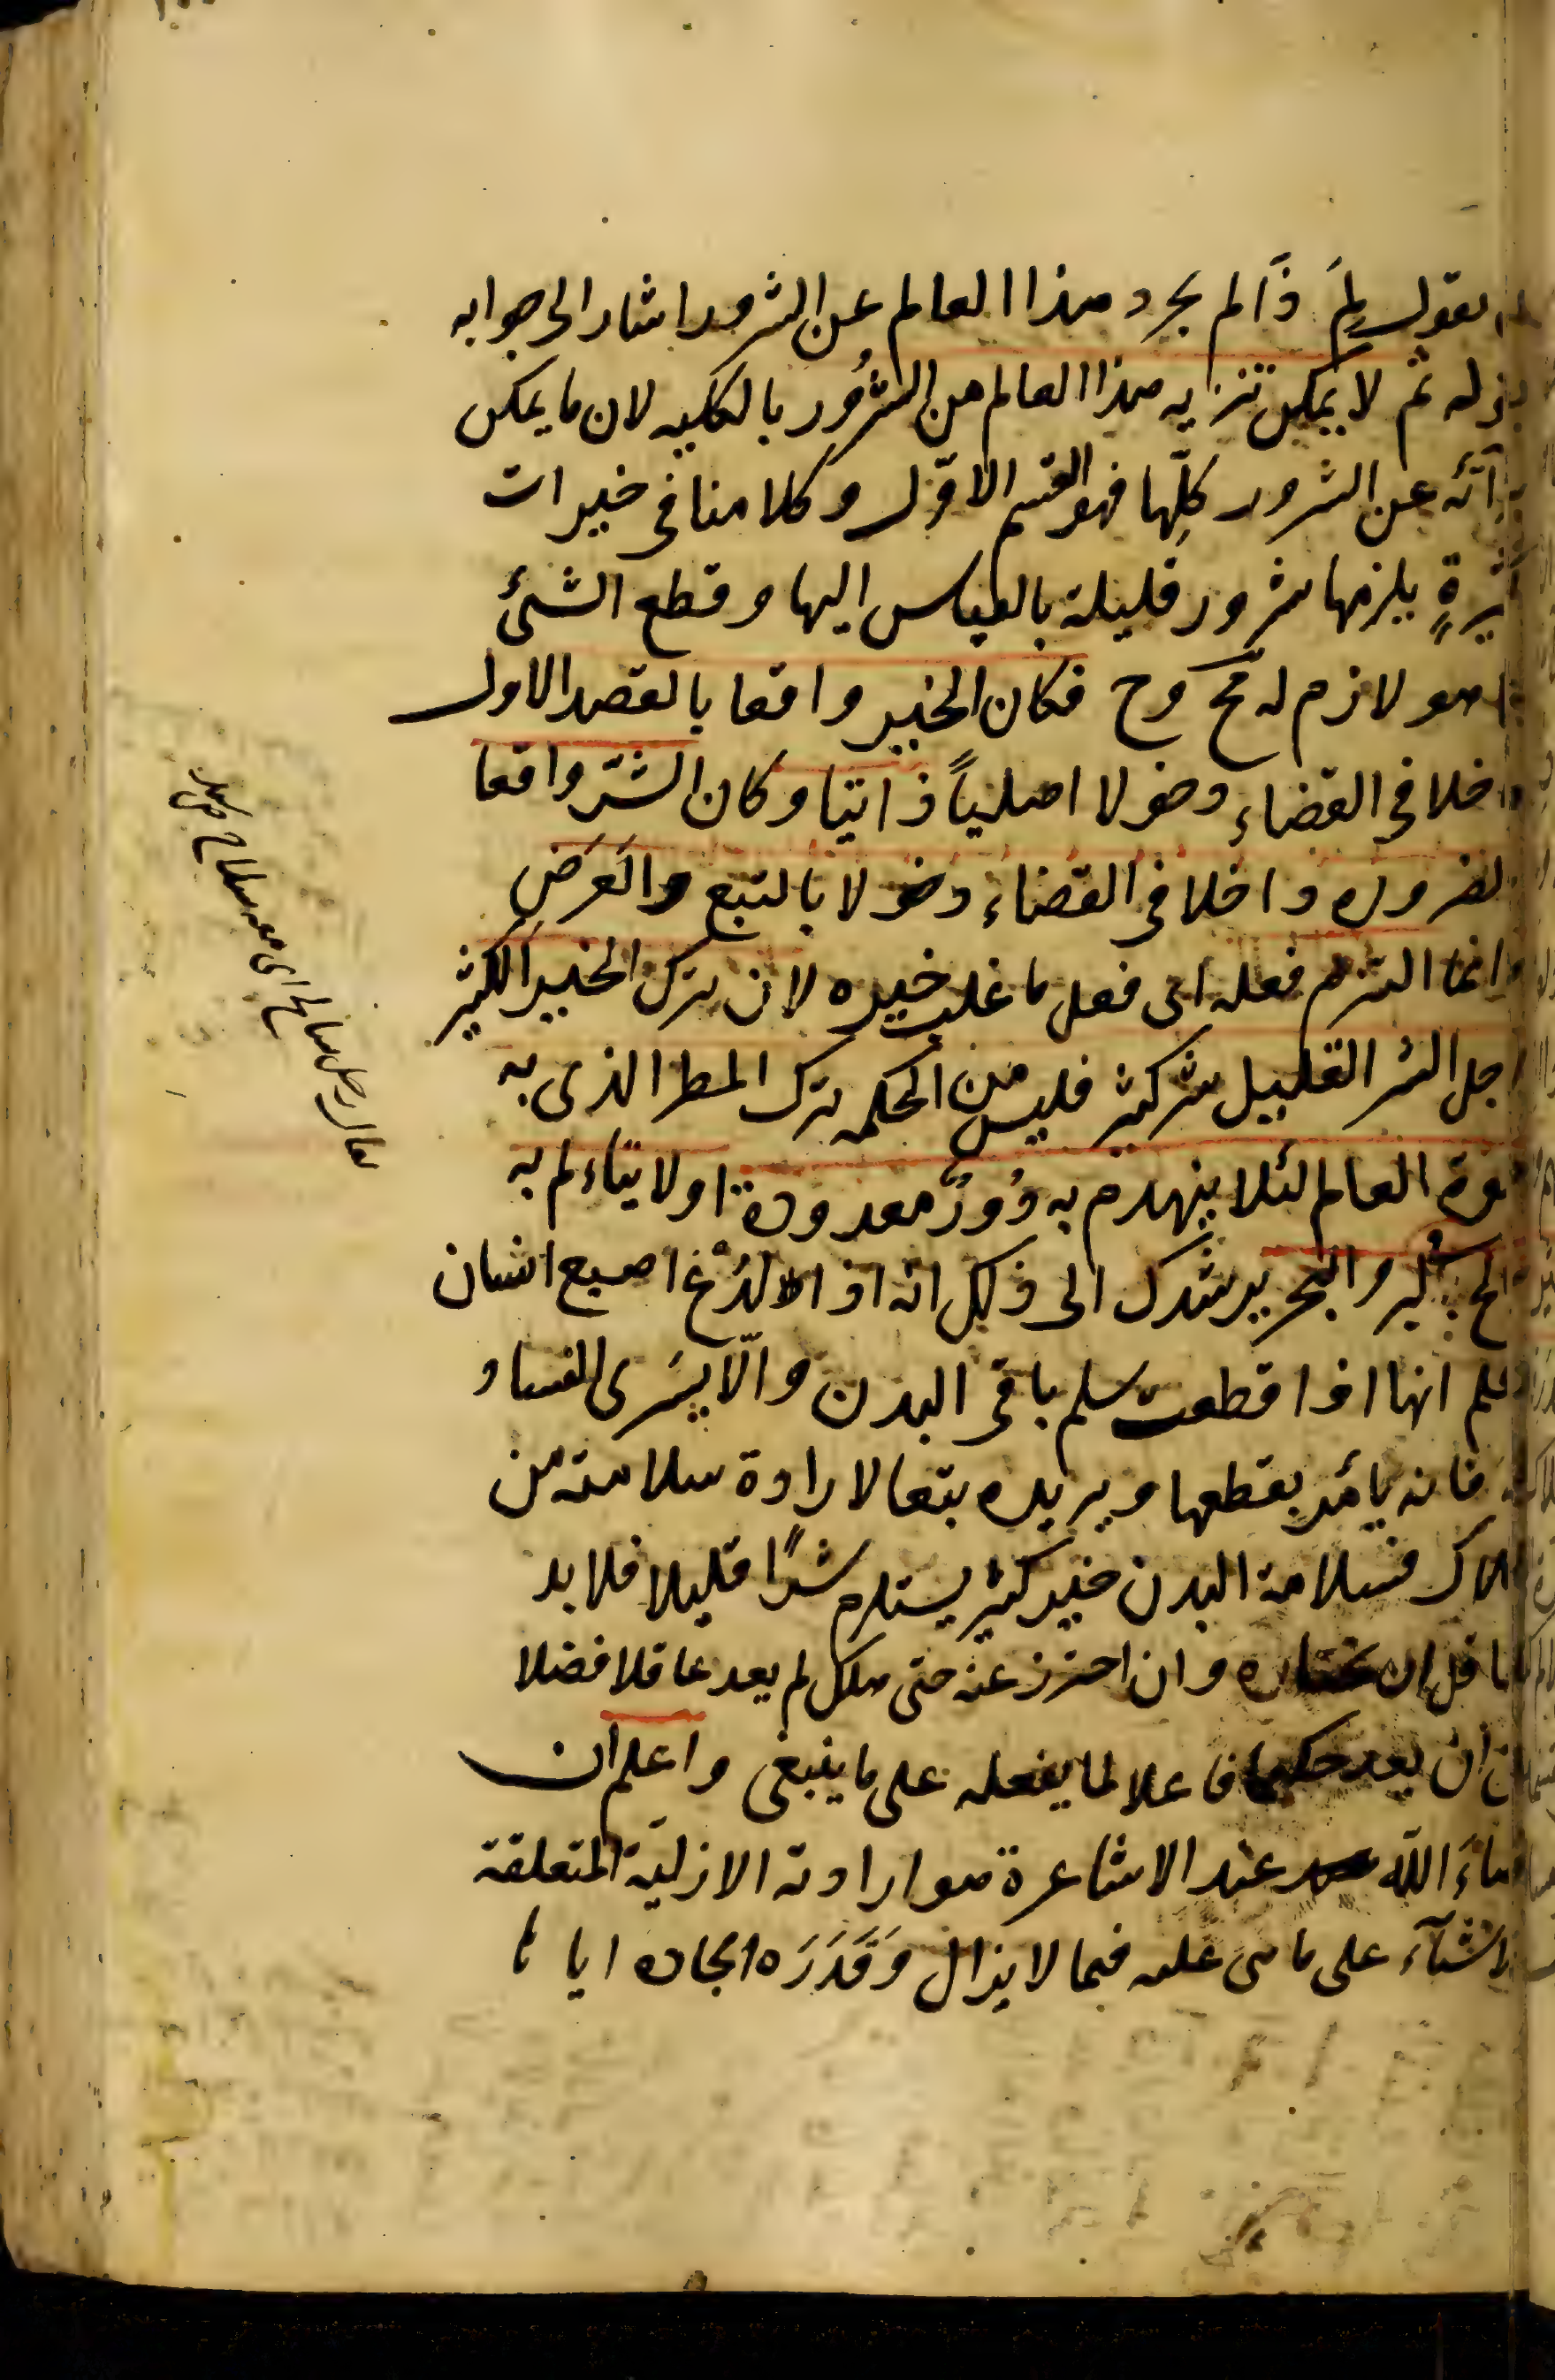 يقول لِمَ ذا لم يجرد هذا العالم عن الشرور اشار الى جوابه
بقوله ثم لا يمكن تنزيه هذا العالم من الشُرور بالكليه لان ما يمكن
برائه عن الشرور كلّها فهو القسم الاوّل وكلامنا فى خيرات
كثيرةٍ يلزمها شرور قليلة بالقياس اليها وقطع الشئ
عما هو لازم له مح وح فكان الخير واقعا بالقصد الاول
داخلا فى القضاء دخولا اصلياً ذاتيا وكان الشّر واقعا
بالضروره داخلا فى القضاء دخولا بالتبع والعَرَضِ
وانما التزم فعله اى فعل ما غلب خيره لان ترك الخير الكثير
لاجل الشر القليل شر كثير فليس من الحكمه ترك المطر الذى به
حيوة العالم لئلا ينهدم به دُورٌ معدودة او لا يتاءلم به
سائح البر والبحر يرشدك الى ذلك انه اذا لُدْغ اصبع انسان
وعلم انها اذا قطعت سلم باقى البدن والّا يسَرى الفساد
فانه يأمُر بقطعها ويريده بتعا لارادة سلامته من
الهلاك فسلامة البدن خير كثير يستلزم شرًا قليلا فلا بد
للعاقل ان يختاره وان احترز عنه حتى هلك لم يعد عاقلا فضلا
عن ان يعد حكيما فاعلا لما يفعله على ما ينبغى واعلم ان
قضاءَ اللّه عند الاشاعرة هو ارادته الازليّة المتعلقة
بالاشيآء على ما هى عليه فيما لا يزال وَقَدَرَه ايجاده اياها
يقال رجل سالح اى معه سلاح